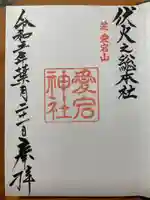 伏火之総本社
芝愛宕山
愛宕神社
令和五年葉月二十一日奉拝